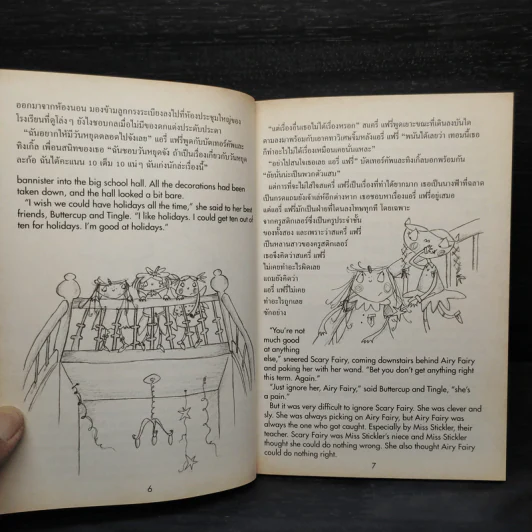 ออกมาจากห้องนอน มองข้ามลูกกรงระเบียงลงไปที่ห้องประชุมใหญ่ของ
โรงเรียนที่ดูโล่ง ๆ ยังไงชอบกลเมื่อไม่มีของตกแต่งประดับประดา
“ฉันอยากให้มีวันหยุดตลอดไปจังเลย” แอรี่ แฟรี่พูดกับบัตเทอร์คัพและ
ทิงเกิ้ล เพื่อนสนิทของเธอ “ฉันชอบวันหยุดจัง ถ้าเป็นเรื่องเกี่ยวกับวันหยุด
ละก้อ ฉันได้คะแนน 10 เต็ม 10 แน่ ๆ ฉันเก่งนักละเรื่องนี้”
bannister into the big school hall. All the decorations had been
taken down, and the hall looked a bit bare.
“I wish we could have holidays all the time,” she said to her best
friends, Buttercup and Tingle. “I like holidays. I could get ten out of
ten for holidays. I’m good at holidays.”
6
“แต่เรื่องอื่นเธอไม่ได้เรื่องหรอก” สแครี่ แฟรี่พูดเยาะขณะที่เดินลงบันได
ตามลงมาพร้อมกับเอาคทาวิเศษจิ้มหลังแอรี่ แฟรี่ “พนันได้เลยว่า เทอมนี้เธอ
ก็ทำอะไรไม่ได้เรื่องเหมือนเคยนั่นแหละ”
“อย่าไปสนใจเธอเลย แอรี่ แฟรี่” บัตเทอร์คัพและทิงเกิ้ลบอกพร้อมกัน
“ยัยนั่นน่ะเป็นพวกตัวแสบ”
แต่การที่จะไม่ใส่ใจสแครี่ แฟรี่เป็นเรื่องที่ทำได้ยากมาก เธอเป็นนางฟ้าที่ฉลาด
แต่แอรี่ แฟรี่มักเป็นฝ่ายที่โดนลงโทษทุกที โดยเฉพาะ
จากครูสติกเลอร์ซึ่งเป็นครูประจำชั้น
ของทั้งสอง และเพราะว่าสแครี่ แฟรี่
เป็นหลานสาวของครูสติกเลอร์
เธอจึงคิดว่าสแครี่ แฟรี่
ไม่เคยทำอะไรผิดเลย
แถมยังคิดว่า
แอรี่ แฟรี่ไม่เคย
ทำอะไรถูกเลย
ซักอย่าง
“You’re not
much good
at anything
else,” sneered Scary Fairy, coming downstairs behind Airy Fairy
and poking her with her wand. “Bet you don’t get anything right
this term. Again.”
“Just ignore her, Airy Fairy,” said Buttercup and Tingle, “she’s
a pain.”
But it was very difficult to ignore Scary Fairy. She was clever and
sly. She was always picking on Airy Fairy, but Airy Fairy was
always the one who got caught. Especially by Miss Stickler, their
teacher. Scary Fairy was Miss Stickler’s niece and Miss Stickler
thought she could do nothing wrong. She also thought Airy Fairy
could do nothing right.
7